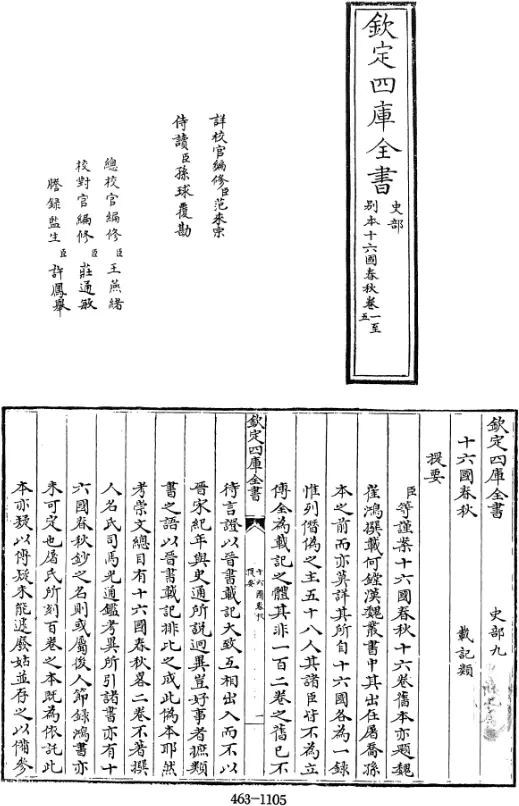 欽定四庫全書
史部
別本十六國春秋卷一至五
詳校官編修臣范來宗
侍讀臣孫球覆勘
總校官編修臣王燕緒
校對官編修臣莊通敏
謄錄監生臣許鳳舉
欽定四庫全書 史部九
十六國春秋 載記類
提要
臣等謹案十六國春秋十六卷舊本亦題魏
崔鴻撰載何鏜漢魏叢書中其出在屠喬孫
本之前而亦莫詳其所自十六國各為一錄
惟列僭偽之主五十八人其諸臣皆不為立
傳全為載記之體其非一百二卷之舊已不
欽定四庫全書
十六國春秋
提要
一
待言證以晉書載記大致互相出入而不以
晉宋紀年與史通所說迥異豈好事者摭類
書之語以晉書載記排比之成此偽本耶然
考崇文總目有十六國春秋畧二卷不著撰
人名氏司馬光通鑑考異所引諸書亦有十
六國春秋鈔之名則或屬後人節錄鴻書亦
未可定也屠氏所刻百卷之本既為依託此
本亦疑以傳疑未能遽廢姑並存之以備參
463-1105